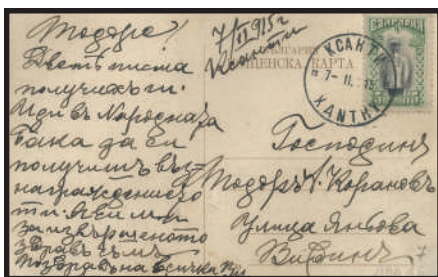 Тодоре!
Дветѣ писма
получихъ ти.
Иди въ Народната
банка да си
получишъ въз-
награждението
ти. Яви ми
за извършеното
Здравъ съмъ.
Поздравъ на всички
7/II 915 г
Ксанти
БЪЛГАРИЯ
ПОЩЕНСКА КАРТА
КСАНТИ
7-II.15
XANTHI
БЪЛГАРИЯ
5
Господинъ
Тодоръ
Корановъ
Улица Янтова
Видинъ
7